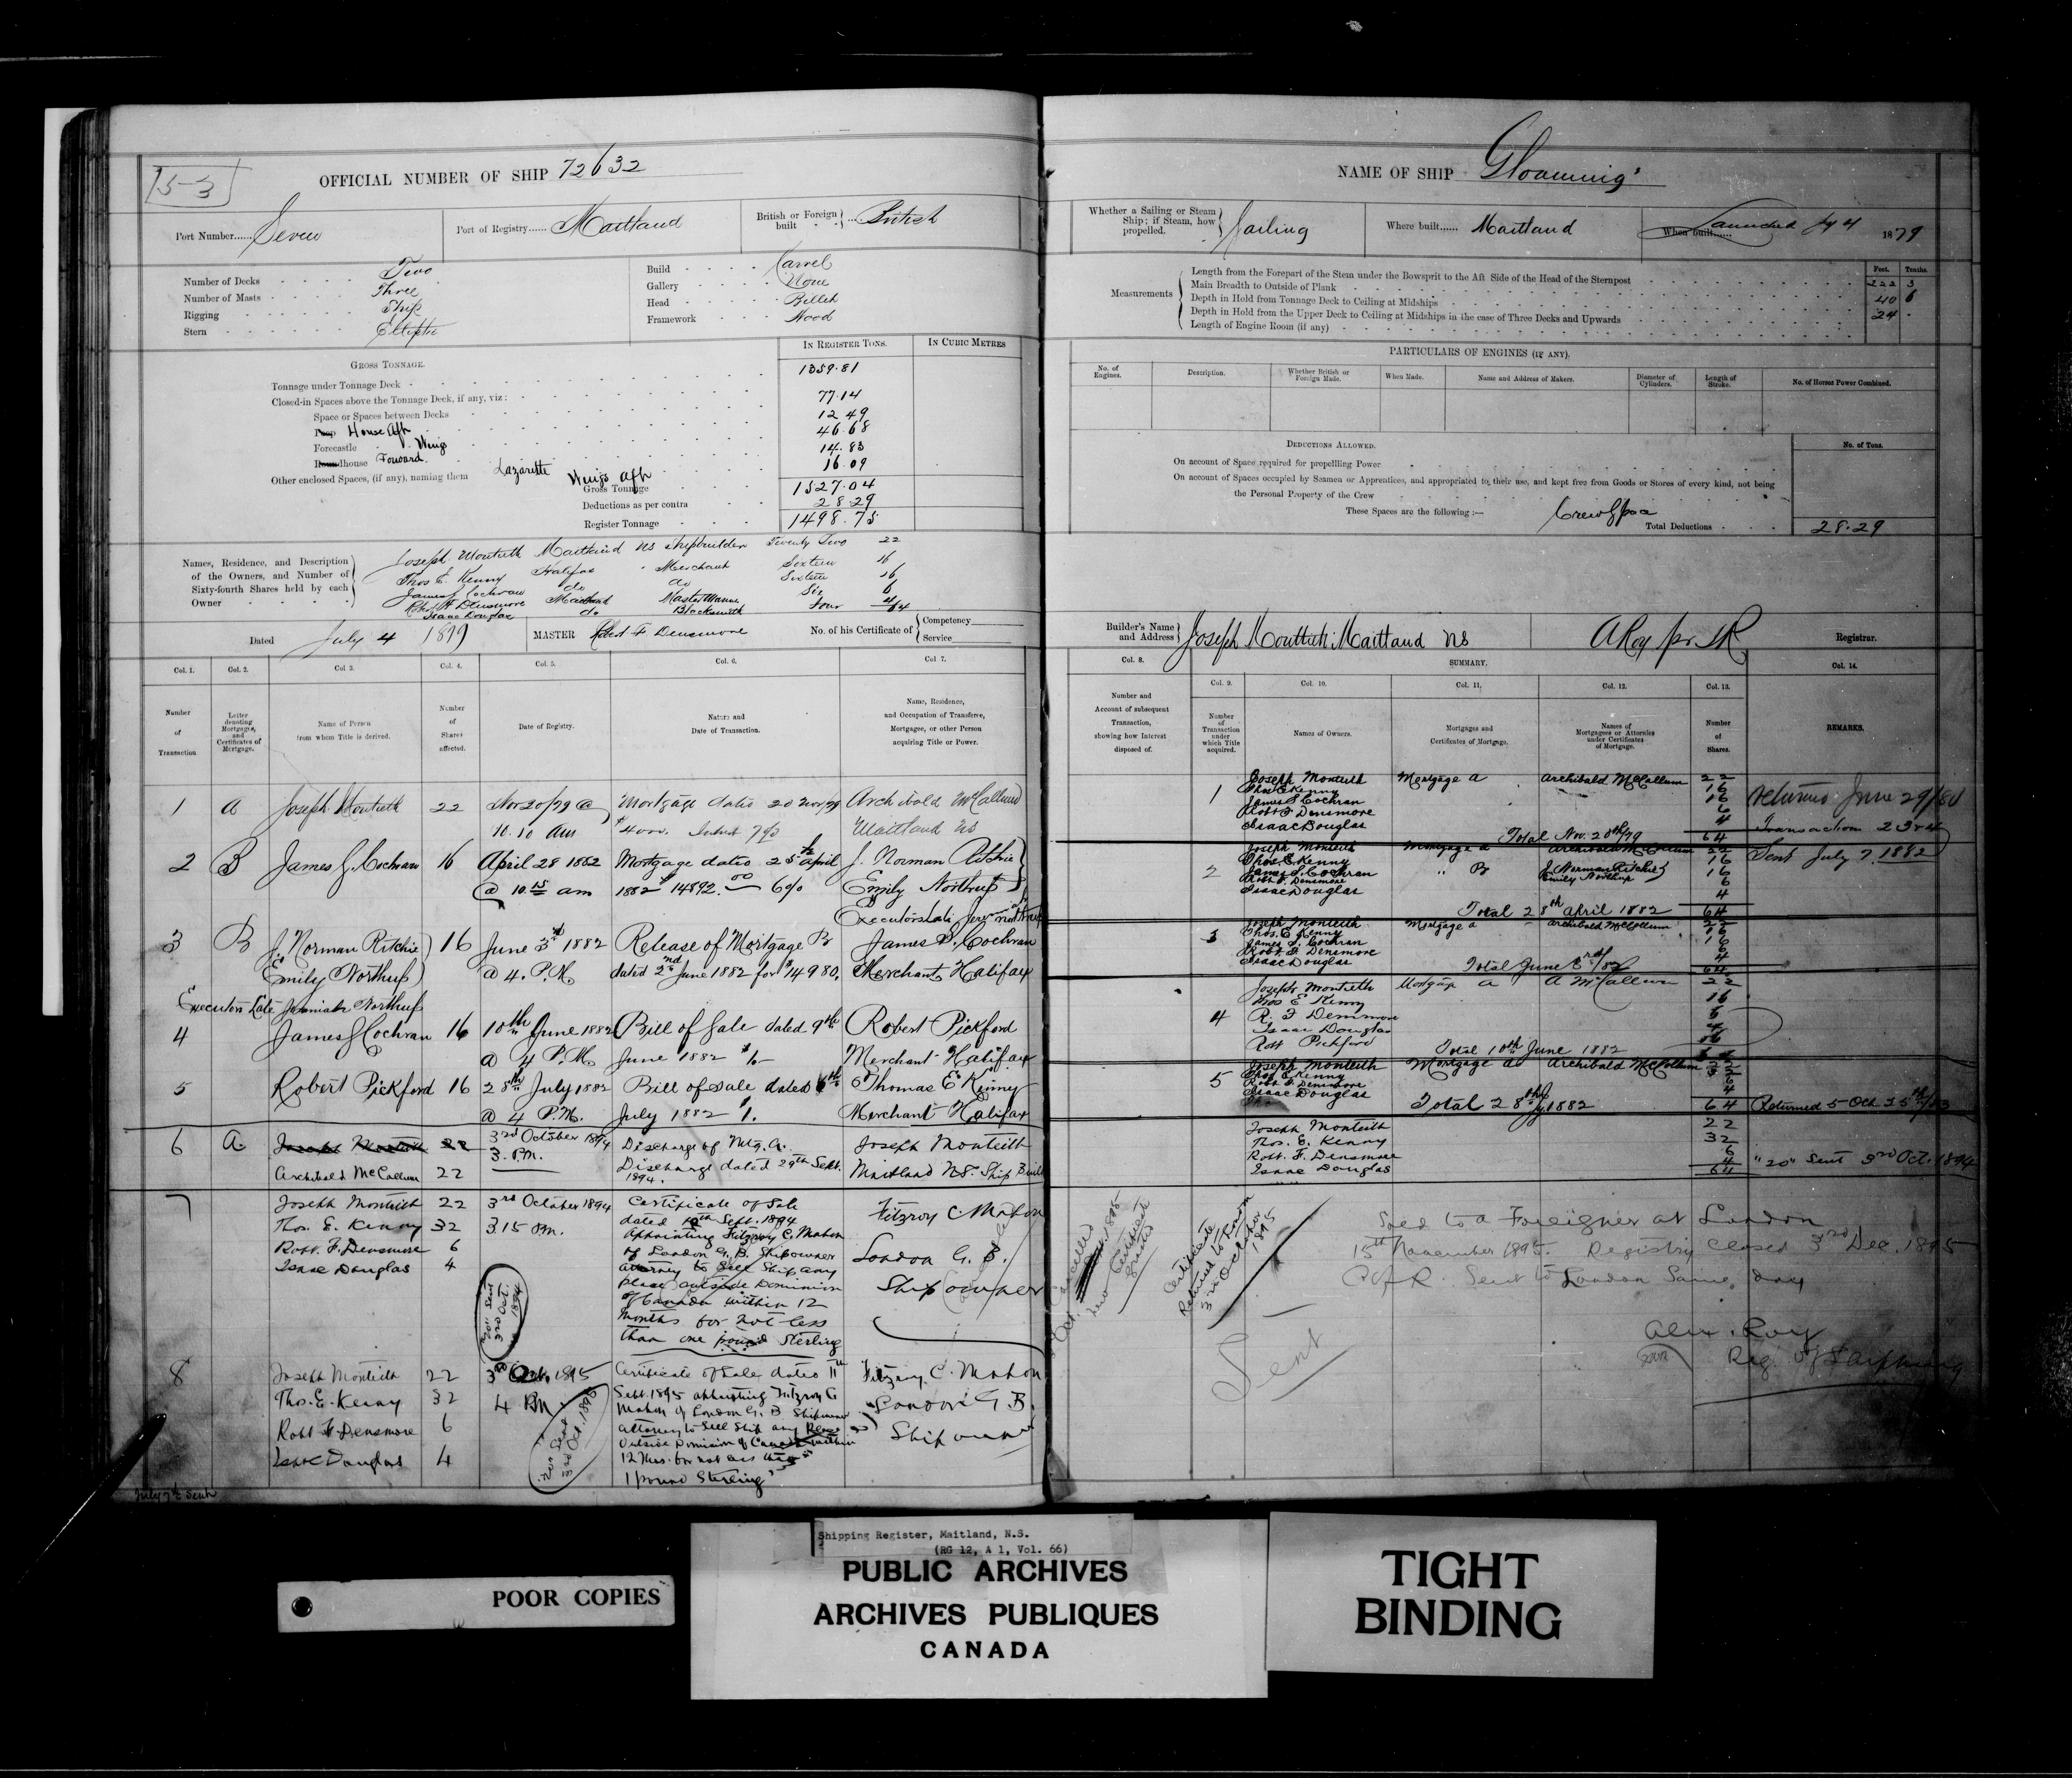 153
OFFICIAL NUMBER OF SHIP 72632
Port Number...... Seven
Port of Registry...... Maitland
British or Foreign built British
Number of Decks Two
Number of Masts Three
Rigging Ship
Stern Elliptic
Build Carvel
Gallery None
Head Billet
Framework Wood
GROSS TONNAGE.
IN REGISTER TONS.
IN CUBIC METRES
Tonnage under Tonnage Deck 1359.81
Closed-in Spaces above the Tonnage Deck, if any, viz:
Space or Spaces between Decks 77.14
House Aft 12 49
Forecastle Wings 46.68
Roundhouse Forward 14.83
Other enclosed Spaces, (if any), naming them Lazarette Wings aft 16.09
Gross Tonnage 1527.04
Deductions as per contra 28.29
Register Tonnage 1498.75
Names, Residence, and Description of the Owners, and Number of Sixty-fourth Shares held by each Owner
Joseph Monteith Maitland NS Shipbuilder Twenty Two 22
Thos E. Kenny Halifax " Merchant Sixteen 16
James Cochran do do Sixteen 16
Robt F Densmore Maitland Master Mariner Six 6
Isaac Douglas do Blacksmith Four 4
64
Dated July 4 1879
MASTER Robert F Densmore
No. of his Certificate of Competency
Service
Col. 1. Col. 2. Col 3. Col. 4. Col. 5. Col. 6. Col 7.
Number of Transaction
Letter denoting Mortgages, and Certificates of Mortgage.
Name of Person from whom Title is derived.
Number of Shares affected.
Date of Registry.
Nature and Date of Transaction.
Name, Residence, and Occupation of Transferee, Mortgagee, or other Person acquiring Title or Power.
1 A Joseph Monteith 22 Nov 20/79 @ Mortgage dated 20 Nov/79 Archibald McCallum
10.10 Am $4000. Interest 7% Maitland NS
2 B James G. Cochran 16 April 28 1882 Mortgage dated 25th April J. Norman Ritchie
@ 10.15 am 1882 $14892.00 6% Emily Northup
Executors late Jeremiah Northup
3 B J. Norman Ritchie 16 June 3d 1882 Release of Mortgage B James S. Cochran
Emily Northup @ 4. P.M. dated 2nd June 1882 for $14980. Merchant Halifax
Executors Late Jeremiah Northup
4 James S Cochran 16 10th June 1882 Bill of Sale dated 9th Robert Pickford
@ 4 P.M. June 1882 $1- Merchant Halifax
5 Robert Pickford 16 28th July 1882 Bill of Sale dated 6th Thomas E Kenny
@ 4 P.M. July 1882 $1. Merchant Halifax
6 A. Joseph Monteith 22 3rd October 1894 Discharge of Mtg. A. Joseph Monteith
3. P.M. Discharge dated 29th Sept. Maitland N.S. Ship Buil
Archibald McCallum 22 1894.
7 Joseph Monteith 22 3rd October 1894 Certificate of Sale Fitzroy C. Mahon
Thos. E. Kenny 32 3.15 P.M. dated 10th Sept. 1894
Robt. F. Densmore 6 Appointing Fitzroy C. Mahon
Isaac Douglas 4 of London G. B. Shipowner London G. B.
attorney to Sell Ship any
place outside Dominion Ship owner
of Canada within 12
Months for not less
than one pound Sterling
"20" Sent 3rd Oct. 1894
8 Joseph Monteith 22 3rd Oct. 1895 Certificate of Sale dated 11th Fitzroy C. Mahon
Thos. E. Kenny 32 4 P.M Sept. 1895 appointing Fitzroy C London G B.
Mahon of London G. B Shipowner
Robt F. Densmore 6 attorney to Sell Ship any Place Ship owner
Outside Dominion of Canada within
Isaac Douglas 4 12 Mos. for not less than
1 pound Sterling
Sent 3rd Oct. 1895
July 7th Sent
NAME OF SHIP Gloaming
Whether a Sailing or Steam Ship; if Steam, how propelled. Sailing
Where built...... Maitland
When built...... Launched Jy 4 1879
Measurements
Feet. Tenths.
Length from the Forepart of the Stem under the Bowsprit to the Aft Side of the Head of the Sternpost 222 3
Main Breadth to Outside of Plank 40 6
Depth in Hold from Tonnage Deck to Ceiling at Midships 24 -
Depth in Hold from the Upper Deck to Ceiling at Midships in the case of Three Decks and Upwards
Length of Engine Room (if any)
PARTICULARS OF ENGINES (IF ANY).
No. of Engines.
Description.
Whether British or Foreign Made.
When Made.
Name and Address of Makers.
Diameter of Cylinders.
Length of Stroke.
No. of Horses Power Combined.
DEDUCTIONS ALLOWED.
No. of Tons.
On account of Space required for propellling Power
On account of Spaces occupied by Seamen or Apprentices, and appropriated to their use, and kept free from Goods or Stores of every kind, not being
the Personal Property of the Crew
These Spaces are the following:— Crew Space
Total Deductions 28.29
Builder's Name and Address Joseph Monteith Maitland NS
A Roy
Registrar.
Col. 8. SUMMARY. Col. 14.
Col. 9. Col. 10. Col. 11. Col. 12. Col. 13.
Number and Account of subsequent Transaction, showing how Interest disposed of.
Number of Transaction under which Title acquired.
Names of Owners.
Mortgages and Certificates of Mortgage.
Names of Mortgagees or Attornies under Certificates of Mortgage.
Number of Shares.
REMARKS.
1 Joseph Monteith Mortgage A Archibald McCallum 22
Thos E Kenny 16
James S Cochran 16
Robt F Densmore 6
Isaac Douglas 4
Total Nov. 20th/79 64
Returned June 29/80
Transaction 2 3 & 4
Sent July 7. 1882
2 Joseph Monteith Mortgage A Archibald McCallum 22
Thos. E. Kenny 16
James S. Cochran " B J. Norman Ritchie 16
Robt F. Densmore Emily Northup 6
Isaac Douglas 4
Total 28th April 1882 64
3 Joseph Monteith Mortgage A Archibald McCallum 22
Thos. E Kenny 16
James S. Cochran 16
Robt. F. Densmore 6
Isaac Douglas 4
Total June 3rd/82 64
4 Joseph Monteith Mortgage A A McCallum 22
Thos E Kenny 16
R. F Densmore 6
Isaac Douglas 4
Robt Pickford 16
Total 10th June 1882
5 Joseph Monteith Mortgage A Archibald McCallum 22
Thos E Kenny 32
Robt F. Densmore 6
Isaac Douglas 4
Total 28th Jy 1882 64
Joseph Monteith 22
Thos. E. Kenny 32
Robt. F. Densmore 6
Isaac Douglas 4
64
"20" Sent 3rd Oct. 1894
Cancelled
New Certificate granted
Certificate Returned to
3rd October 1895
Sent
Sold to a Foreigner at London
15th November 1895. Registry closed 3rd Dec. 1895
C of R. Sent to London Same day
Alex. Roy
Reg. of Shipping
Shipping Register, Maitland, N.S.
(RG 12, A 1, Vol. 66)
POOR COPIES
PUBLIC ARCHIVES
ARCHIVES PUBLIQUES
CANADA
TIGHT
BINDING